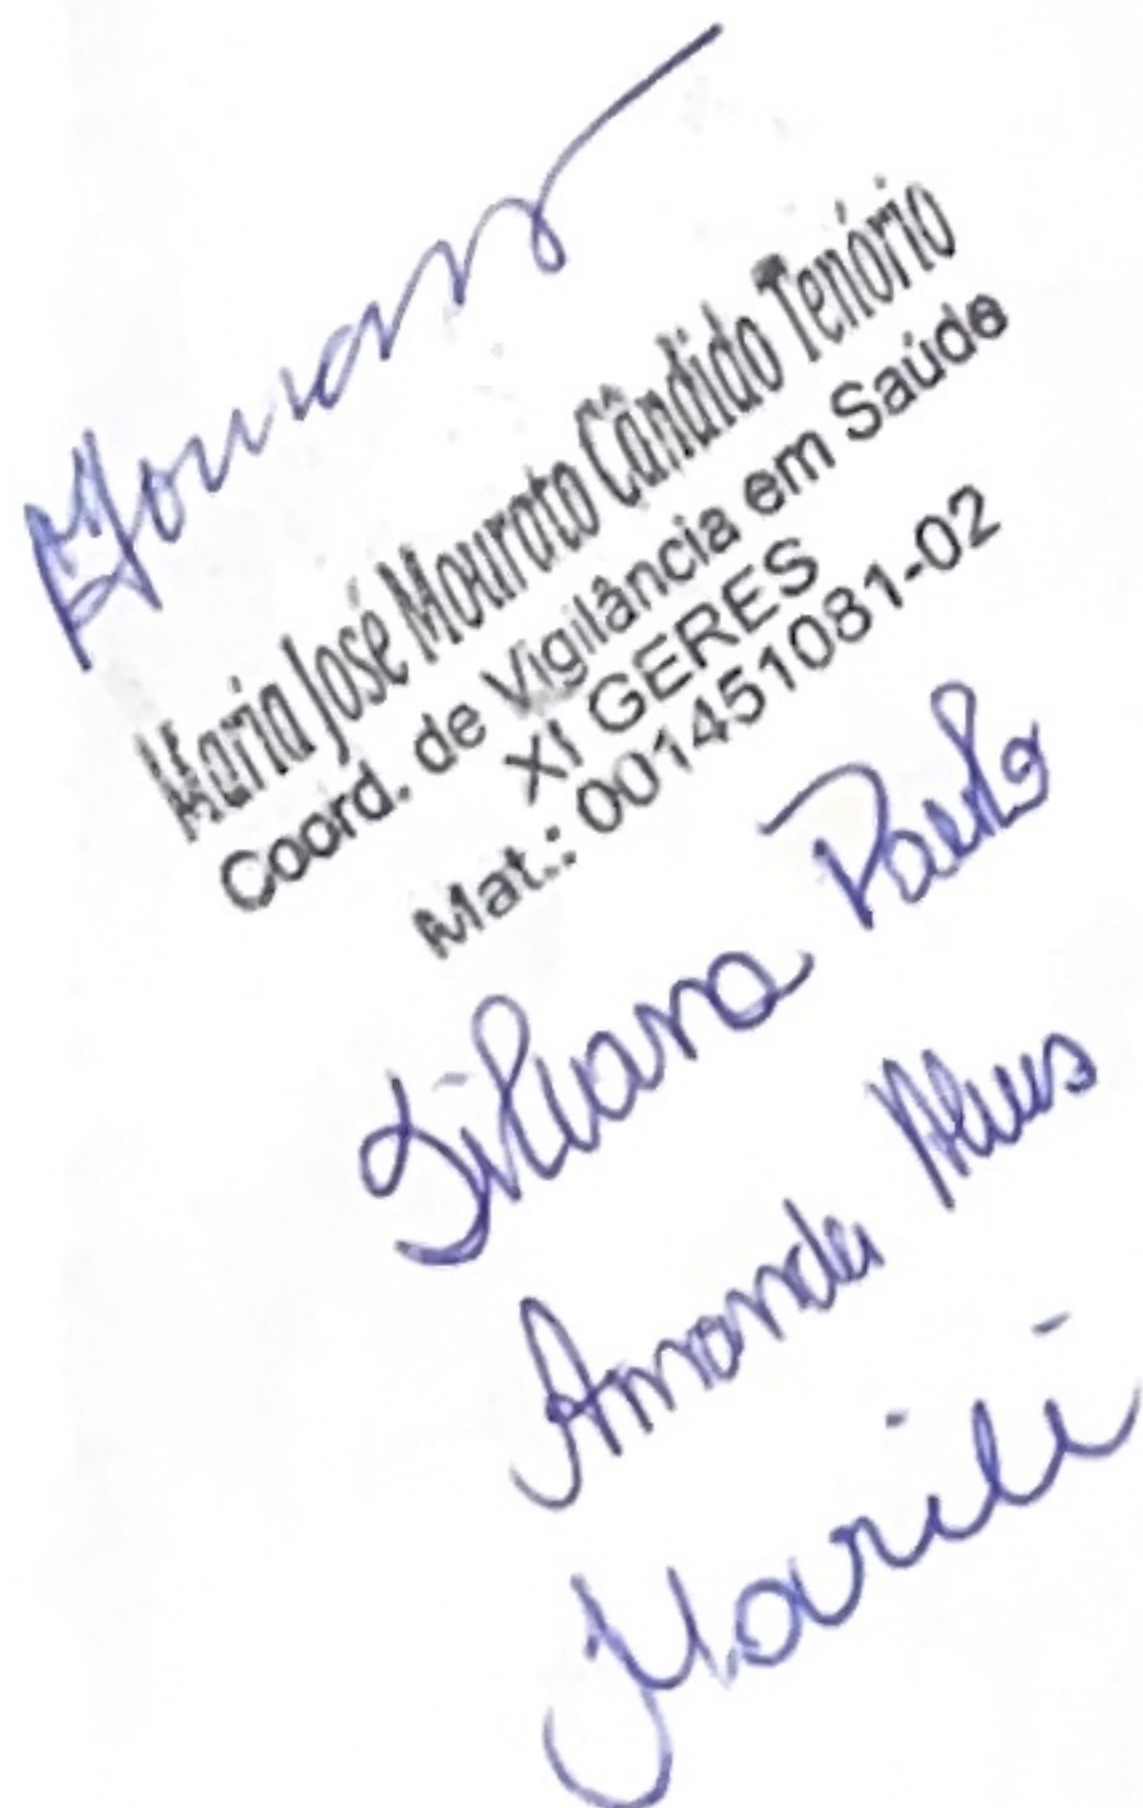 Maria José Mourato Cândido Tenório
Coord. de Vigilância em Saúde
XI GERES
Mat.: 001451081-02
Silvana Paula
Amanda Alves